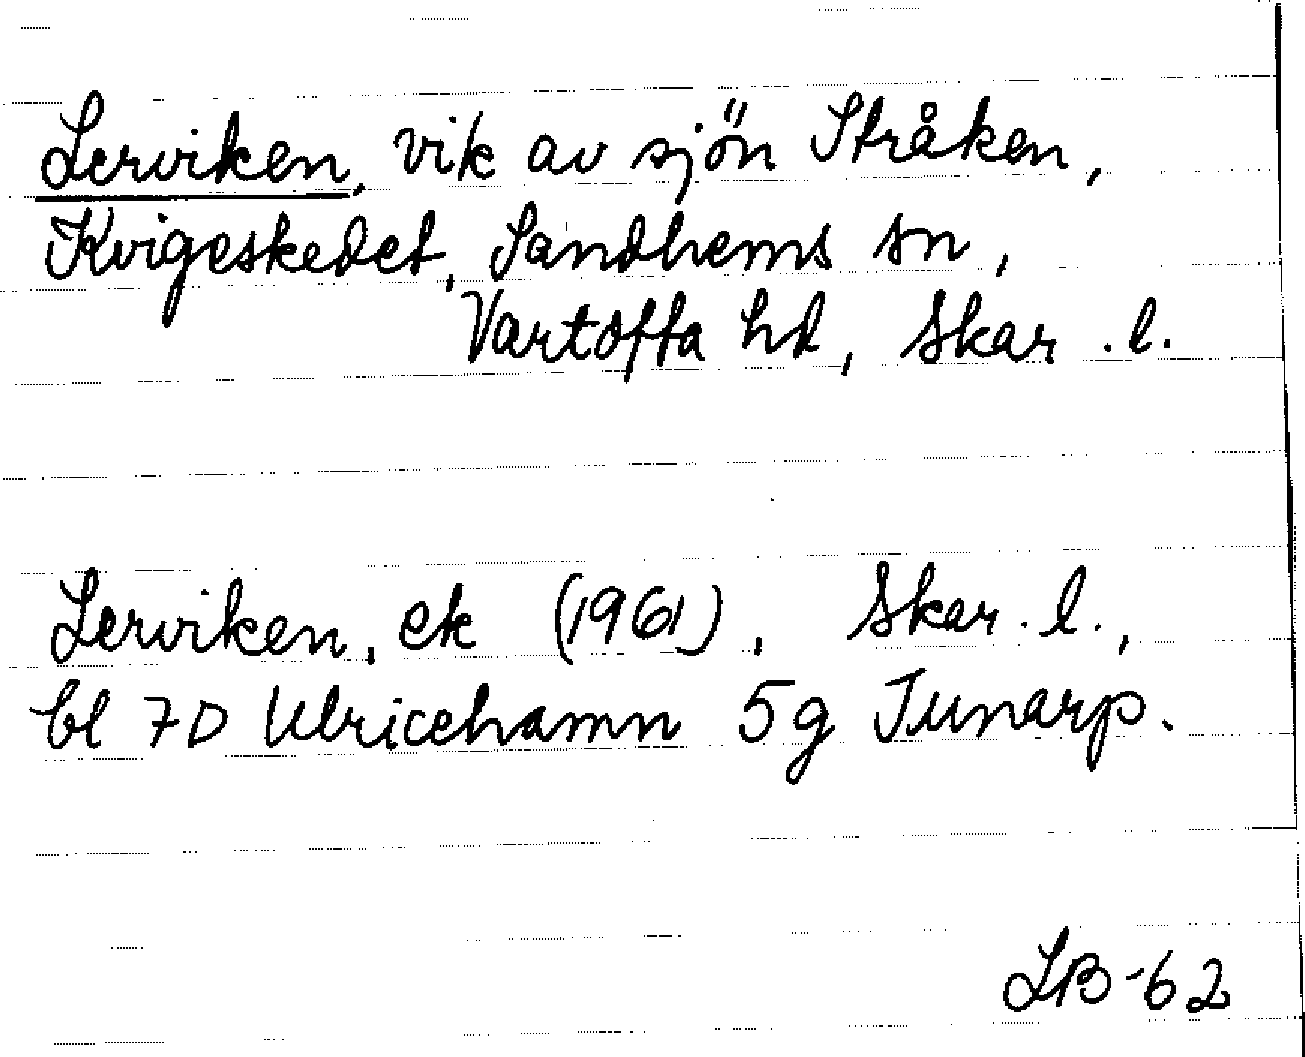 Lerviken, vik av sjön Stråken,
Kvigeskedet, Sandhems sn,
Vartofta hd, Skar. l.
Lerviken, ek (1961), Skar. l.,
bl 7D Ulricehamn 5g Tunarp.
LB-62